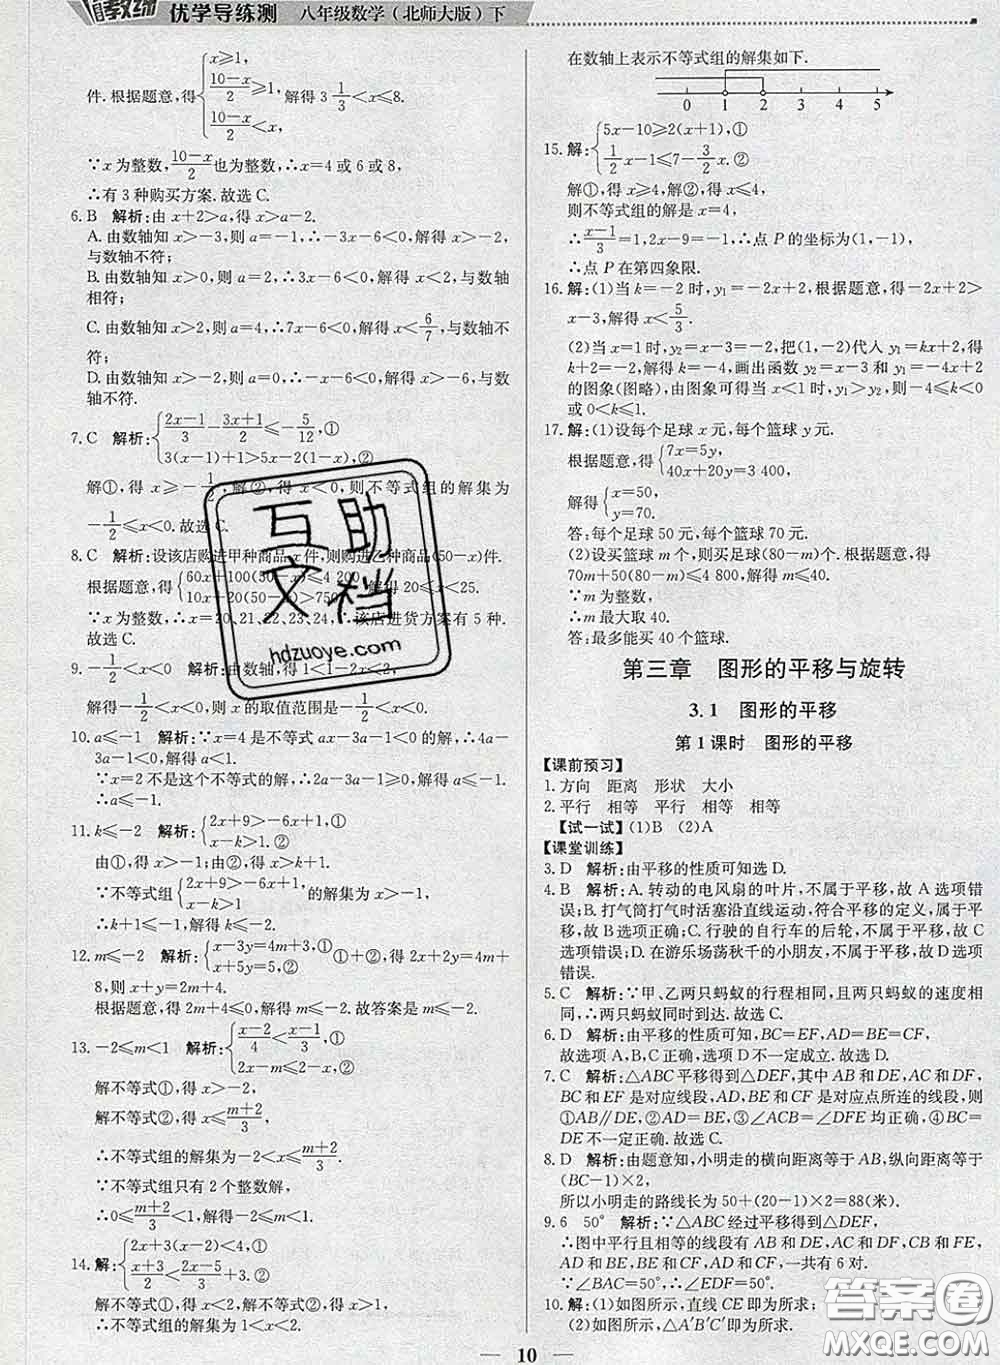 优学导练测 八年级数学(北师大版)下
件.根据题意,得{x≥1, (10-x)/2≥1, (10-x)/2<x, 解得 3 1/3<x≤8.
∵x 为整数,(10-x)/2也为整数,∴x=4 或 6 或 8,
∴有 3 种购买方案.故选 C.
6. B 解析:由 x+2>a,得 x>a-2.
A. 由数轴知 x>-3,则 a=-1,∴-3x-6<0,解得 x>-2,
与数轴不符;
B. 由数轴知 x>0,则 a=2,∴3x-6<0,解得 x<2,与数轴
相符;
C. 由数轴知 x>2,则 a=4,∴7x-6<0,解得 x<6/7,与数轴不
符;
D. 由数轴知 x>-2,则 a=0,∴-x-6<0,解得 x>-6,与数
轴不符.
7. C 解析:{(2x-1)/3-(3x+1)/2≤-5/12,① 3(x-1)+1>5x-2(1-x),②
解①,得 x≥-1/2,解②,得 x<0,则不等式组的解集为
-1/2≤x<0.故选 C.
8. C 解析:设该店购进甲种商品 x 件,则购进乙种商品(50-x)件.
根据题意,得{60x+100(50-x)≤4 200, 10x+20(50-x)>750, 解得 20≤x<25.
∵x 为整数,∴x=20,21,22,23,24,∴该店进货方案有 5 种.
故选 C.
9. -1/2<x<0 解析:由数轴,得 1<1-2x<2,
解得-1/2<x<0,∴x 的取值范围是-1/2<x<0.
10. a≤-1 解析:∵x=4 是不等式 ax-3a-1<0 的解,∴4a-
3a-1<0,解得 a<1.
∵x=2 不是这个不等式的解,∴2a-3a-1≥0,解得 a≤-1,
∴a≤-1.
11. k≤-2 解析:{2x+9>-6x+1,① x-k>1,②
由①,得 x>-1;由②,得 x>k+1.
∵不等式组{2x+9>-6x+1, x-k>1 的解集为 x>-1,
∴k+1≤-1,解得 k≤-2.
12. m≤-2 解析:{x-3y=4m+3,① x+5y=5,② ①+②,得 2x+2y=4m+
8,则 x+y=2m+4.
根据题意,得 2m+4≤0,解得 m≤-2.故答案是 m≤-2.
13. -2≤m<1 解析:{(x-2)/4<(x-1)/3,① 2x-m≤2-x,②
解不等式①,得 x>-2,
解不等式②,得 x≤(m+2)/3,
∴不等式组的解集为-2<x≤(m+2)/3.
∵不等式组只有 2 个整数解,
∴0≤(m+2)/3<1,解得-2≤m<1.
14. 解:{2x+3(x-2)<4,① (x+3)/2≤(2x-5)/3+3.②
解不等式①,得 x<2,
解不等式②,得 x>1,
故不等式组的解集为 1<x<2.
在数轴上表示不等式组的解集如下.
0 1 2 3 4 5
15. 解:{5x-10≥2(x+1),① 1/2x-1≤7-3/2x.②
解①,得 x≥4,解②,得 x≤4,
则不等式组的解是 x=4,
∵(x-1)/3=1,2x-9=-1,∴点 P 的坐标为(1,-1),
∴点 P 在第四象限.
16. 解:(1)当 k=-2 时,y₁=-2x+2,根据题意,得-2x+2>
x-3,解得 x<5/3.
(2)当 x=1 时,y₂=x-3=-2,把(1,-2)代入 y₁=kx+2,得
k+2=-2,解得 k=-4,画出函数 y₂=x-3 和 y₁=-4x+2
的图象(图略),由图象可得当 x<1 时,y₁>y₂,则-4≤k<0
或 0<k≤1.
17. 解:(1)设每个足球 x 元,每个篮球 y 元.
根据题意,得{7x=5y, 40x+20y=3 400,
解得{x=50, y=70.
答:每个足球 50 元,每个篮球 70 元.
(2)设买篮球 m 个,则买足球(80-m)个.根据题意,得
70m+50(80-m)≤4 800,解得 m≤40.
∵m 为整数,
∴m 最大取 40.
答:最多能买 40 个篮球.
第三章 图形的平移与旋转
3.1 图形的平移
第 1 课时 图形的平移
【课前预习】
1. 方向 距离 形状 大小
2. 平行 相等 平行 相等 相等
【试一试】(1)B (2)A
【课堂训练】
3. D 解析:由平移的性质可知选 D.
4. B 解析:A. 转动的电风扇的叶片,不属于平移,故 A 选项错
误;B. 打气筒打气时活塞沿直线运动,符合平移的定义,属于平
移,故 B 选项正确;C. 行驶的自行车的后轮,不属于平移,故 C
选项错误;D. 在游乐场荡秋千的小朋友,不属于平移,故 D 选项
错误.
5. C 解析:∵甲、乙两只蚂蚁的行程相同,且两只蚂蚁的速度相
同,∴两只蚂蚁同时到达.故选 C.
6. D 解析:由平移的性质可知,BC=EF,AD=BE=CF,
故选项 A、B、C 正确,选项 D 不一定正确.故选 D.
7. C 解析:△ABC 平移得到△DEF,其中 AB 和 DE,AC 和 DF,
BC 和 EF 是对应线段,AD、BE 和 CF 是对应点所连的线段,则
①AB∥DE、②AD=BE、③∠ACB=∠DFE 均正确,④BC=
DE 不一定正确.故选 C.
8. D 解析:由题意知,小明走的横向距离等于 AB,纵向距离等于
(BC-1)×2,
所以小明走的路线长为 50+(20-1)×2=88(米).
9. 6 50° 解析:∵△ABC 经过平移得到△DEF,
∴图中平行且相等的线段有 AB 和 DE、BC 和 EF、AC 和 DF、
AD 和 BE、AD 和 CF、BE 和 CF,一共有 6 对.
∵∠BAC=50°,∴∠EDF=50°.
10. 解:(1)如图所示,直线 CE 即为所求;
(2)如图所示,△A'B'C' 即为所求.
10
互助文档
hdzuoye.com
答案圈
MXQE.COM